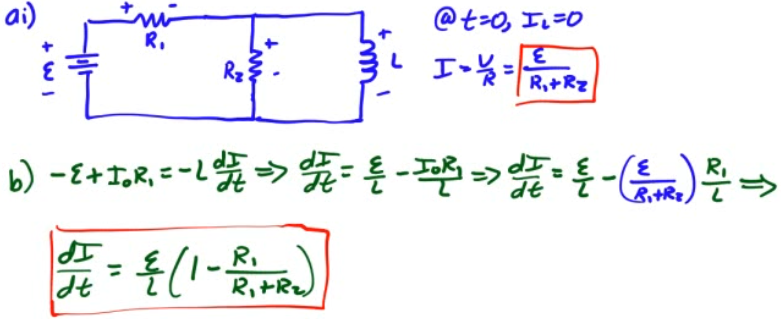 ai)
+ -
R₁
+ ε -
R₂ + -
+ L -
@ t=0, I_L=0
I = V/R = ε/(R₁+R₂)
b) -ε+I₀R₁ = -L dI/dt ⇒ dI/dt = ε/L - I₀R₁/L ⇒ dI/dt = ε/L - (ε/(R₁+R₂)) R₁/L ⇒
dI/dt = ε/L (1 - R₁/(R₁+R₂))